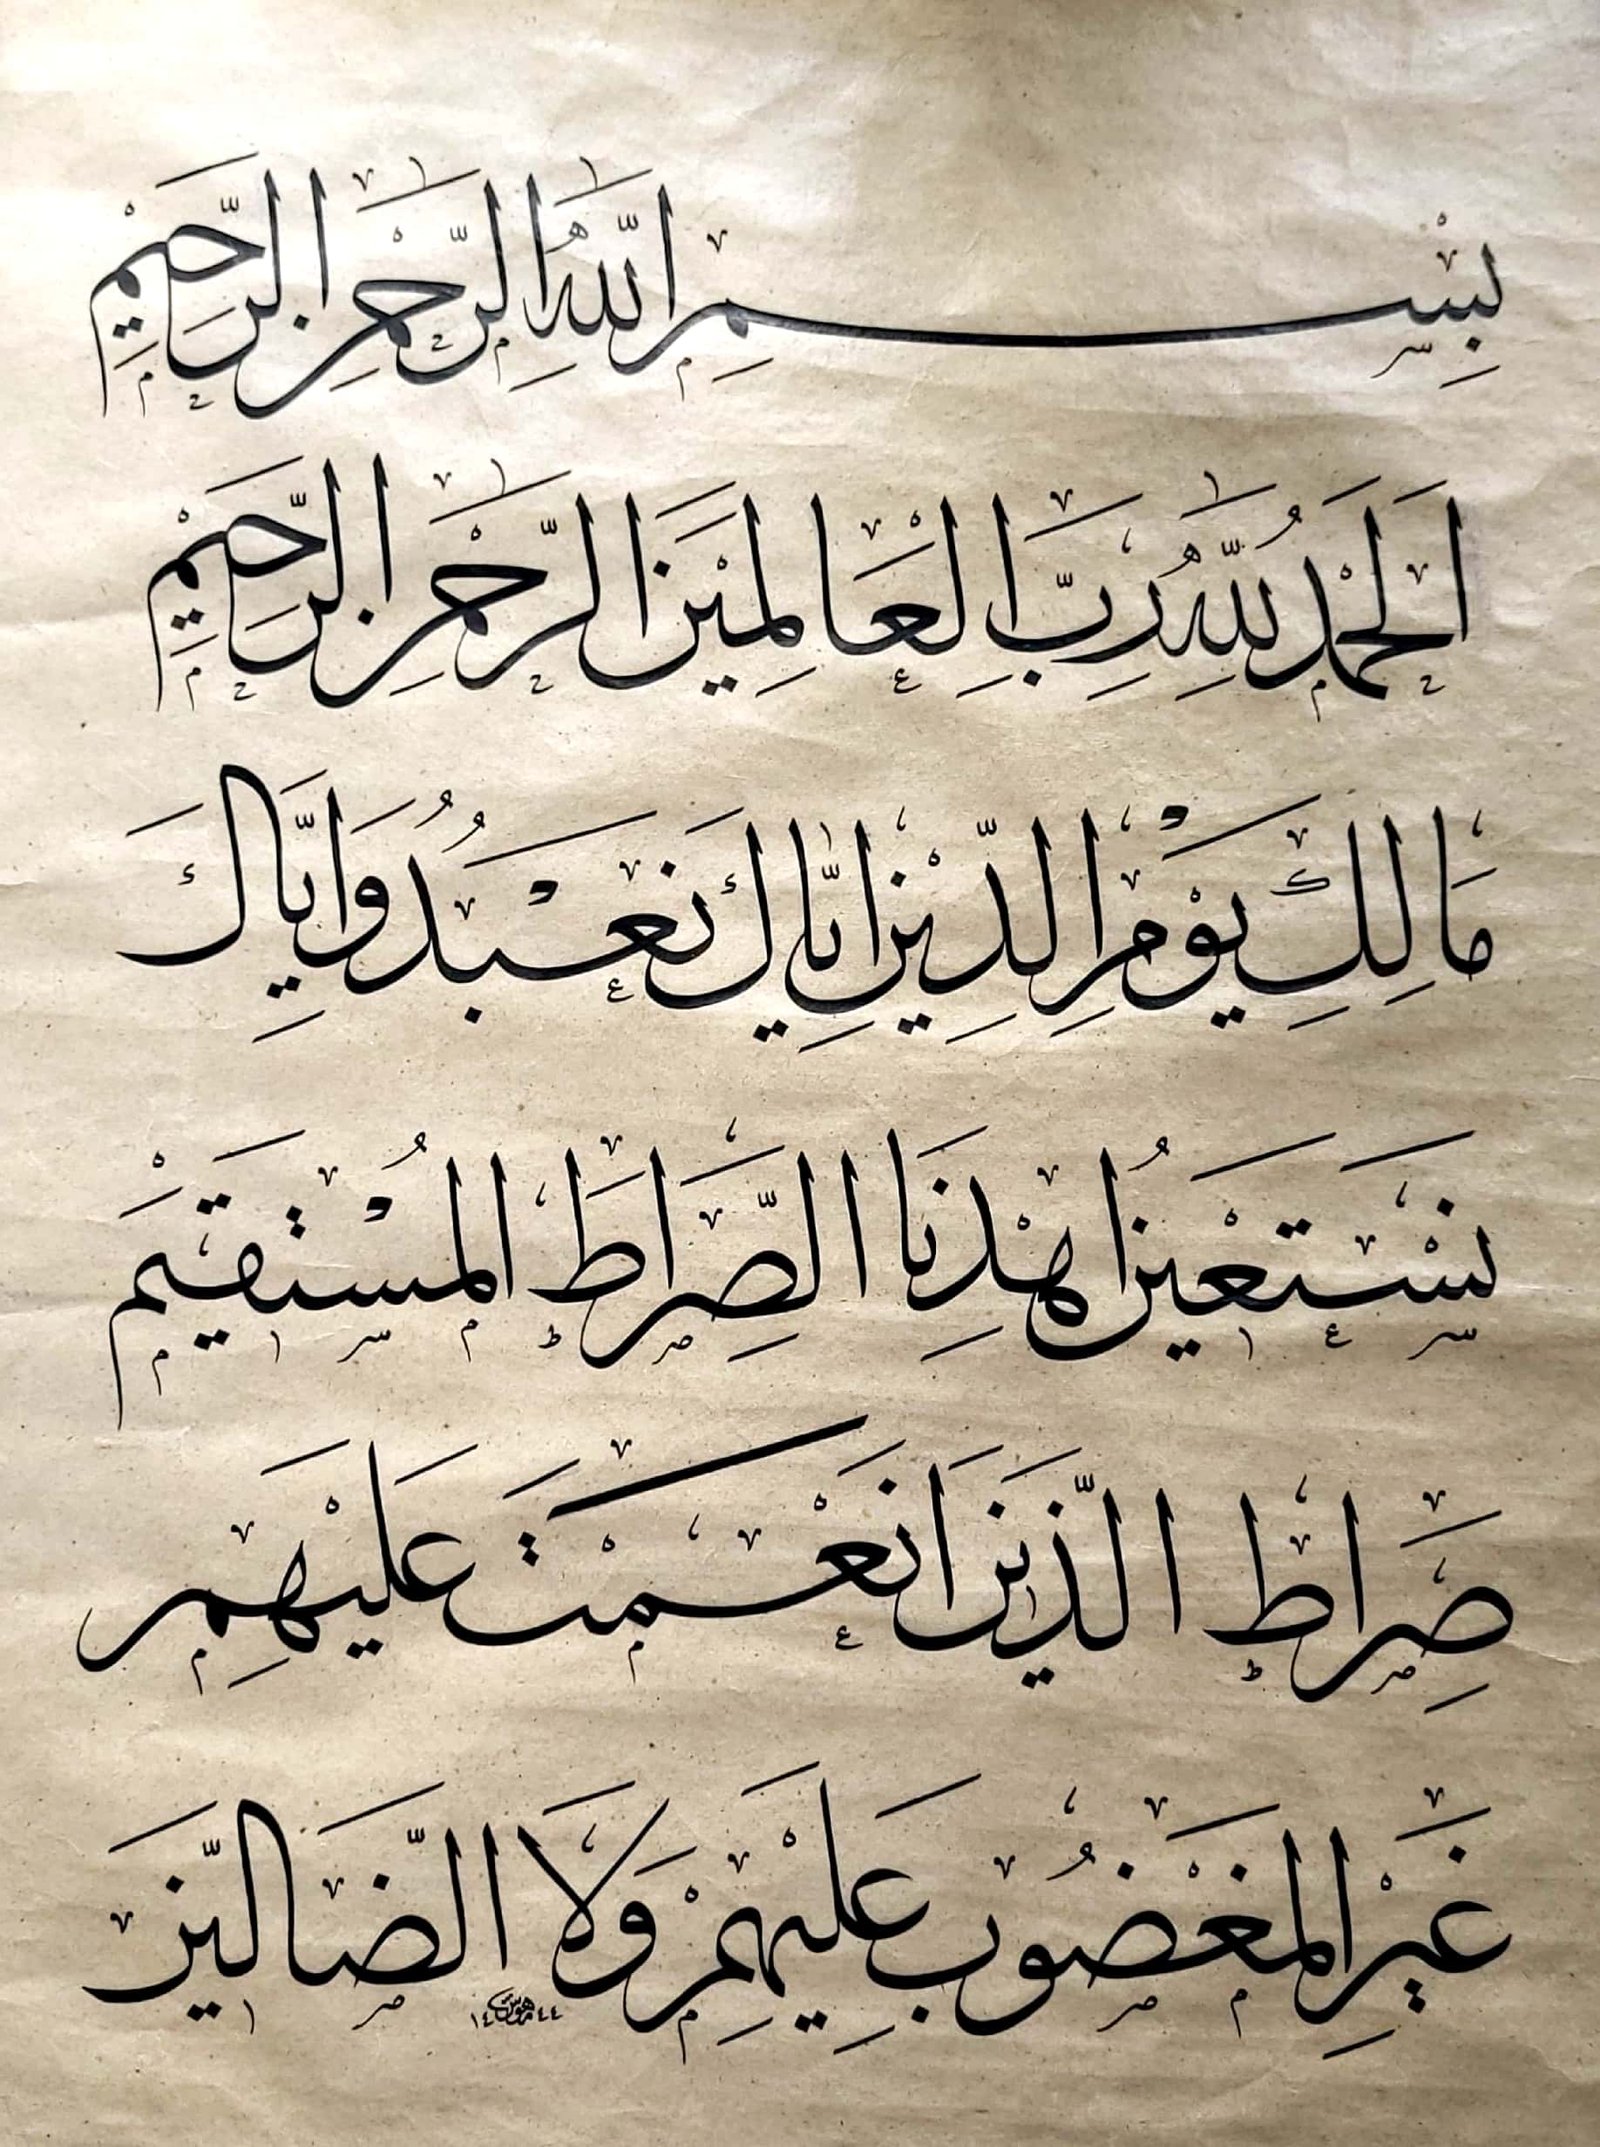 بِسْمِ اللّٰهِ الرَّحْمٰنِ الرَّحِيْمِ
اَلْحَمْدُ لِلّٰهِ رَبِّ الْعَالَمِيْنَ الرَّحْمٰنِ الرَّحِيْمِ
مَالِكِ يَوْمِ الدِّيْنِ اِيَّاكَ نَعْبُدُ وَاِيَّاكَ
نَسْتَعِيْنُ اِهْدِنَا الصِّرَاطَ الْمُسْتَقِيْمَ
صِرَاطَ الَّذِيْنَ اَنْعَمْتَ عَلَيْهِمْ
غَيْرِ الْمَغْضُوبِ عَلَيْهِمْ وَلَا الضَّالِّيْنَ